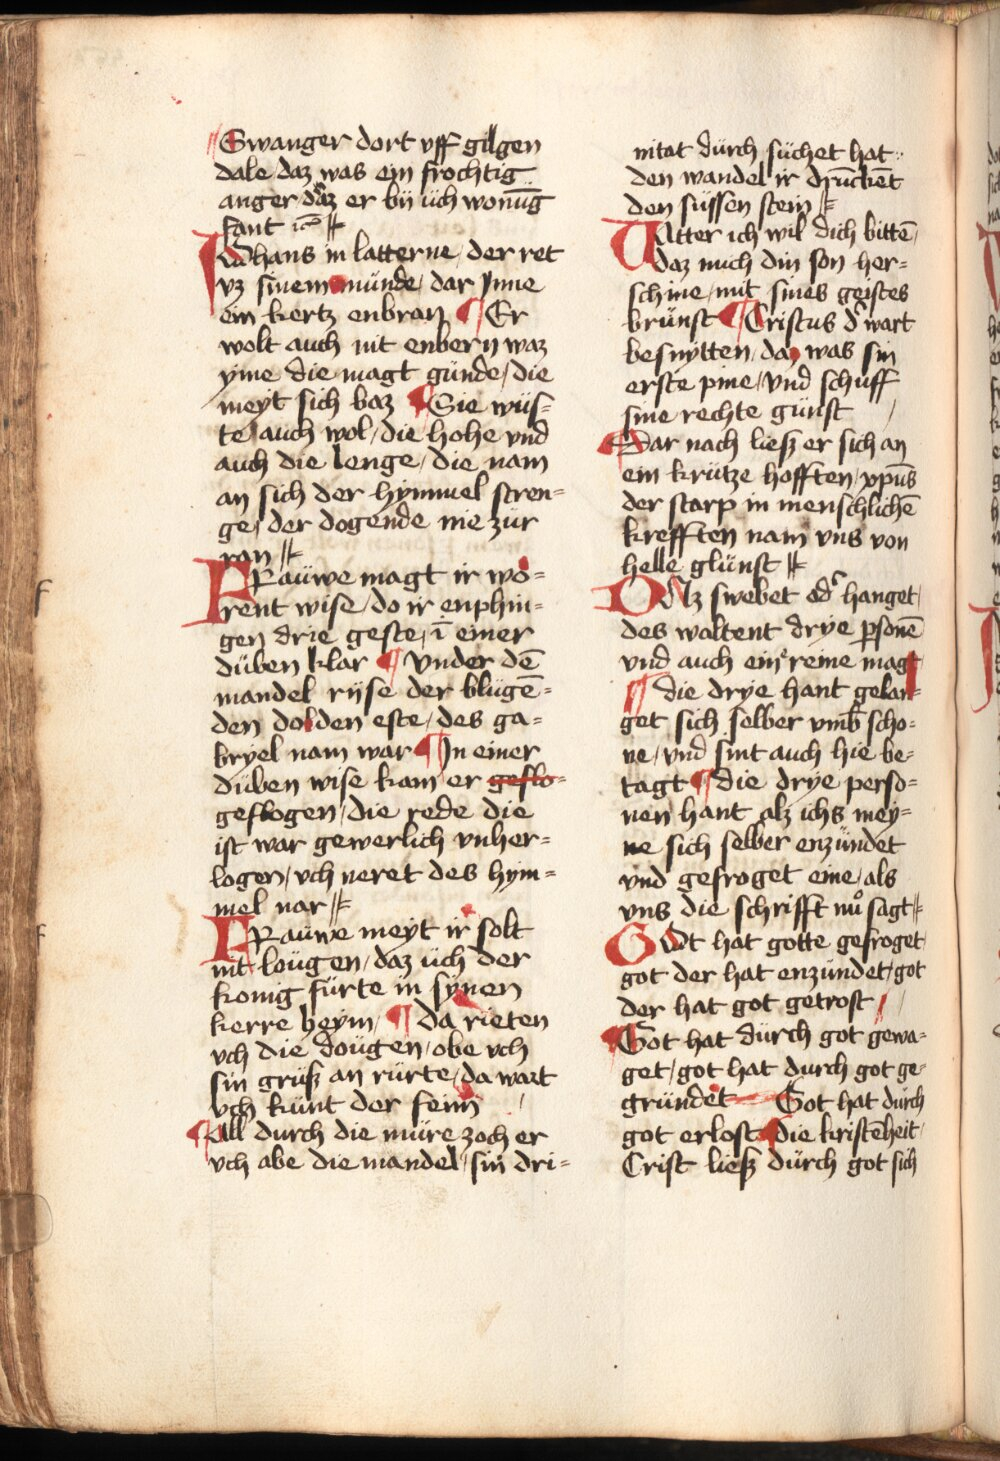 Swanger dort vff gilgen
dale / daz was ein frochtig
anger / daz er bÿ üch wonūg
fant ic̄
Johans in latterne / der ret
vz sinem münde / dar Jnne
ein kertz enbran ¶ Er
wolt auch nit enbern waz
yme die magt günde / die
meyt sich baz ¶ Sie wüs=
te auch wol / die hohe vnd
auch die lenge / die nam
an sich der hymmel stren=
ge / der dogende nie zür
ran
FRauwe magt ir wo=
rent wise / do ir enphin=
gen drie geste / ī einer
düben klar ¶ Vnder dē
mandel ryse der blügē=
den dolden este / des ga=
bryel nam war ¶ Jn einer
düben wise kam er geflo=
geflogen / die rede die
ist war gewerlich vnher=
logen / vch neret des hym=
mel nar
FRauwe meyt ir solt
nit loügen / daz üch der
konig fürte in synen
kerre heym / ¶ da rieten
vch die doügen / obe vch
sin grüß an rürte / da wart
vch künt der fein
¶ All durch die müre zoch er
vch abe die mandel / sin dri=
nitat dürch süchet hat
den wandel ir drūckēt
den süssen stein
VAtter ich wil dich bittē /
daz mich din son her=
schine / mit sines geistes
brünst ¶ Cristus d' wart
besnytten / daz was sin
erste pine / vnd schuff
sine rechte günst /
¶ Dar nach ließ er sich an
ein krütze hefften / xpūs
der starp in menschlichē
krefften nam vns von
helle glünst
OAlz swebet od' hanget /
des waltent drye ꝑsonē
vnd auch ein reine magt
¶ die drye hant gelan=
get sich selber vmb scho=
ne / vnd sint auch hie be=
tagt ¶ die drye perso=
nen hant alz ichs mey=
ne sich selber enzündet
vnd gefroget eine / als
vns die schrifft nuͦ sagt
GOt hat gotte gefroget /
got der hat enzündet / got
der hat got getrost /
¶ Got hat dürch got gewa=
get / got hat durch got ge=
gründet Got hat dürch
got erlost ¶ die kristēheit /
Crist ließ dürch got sich